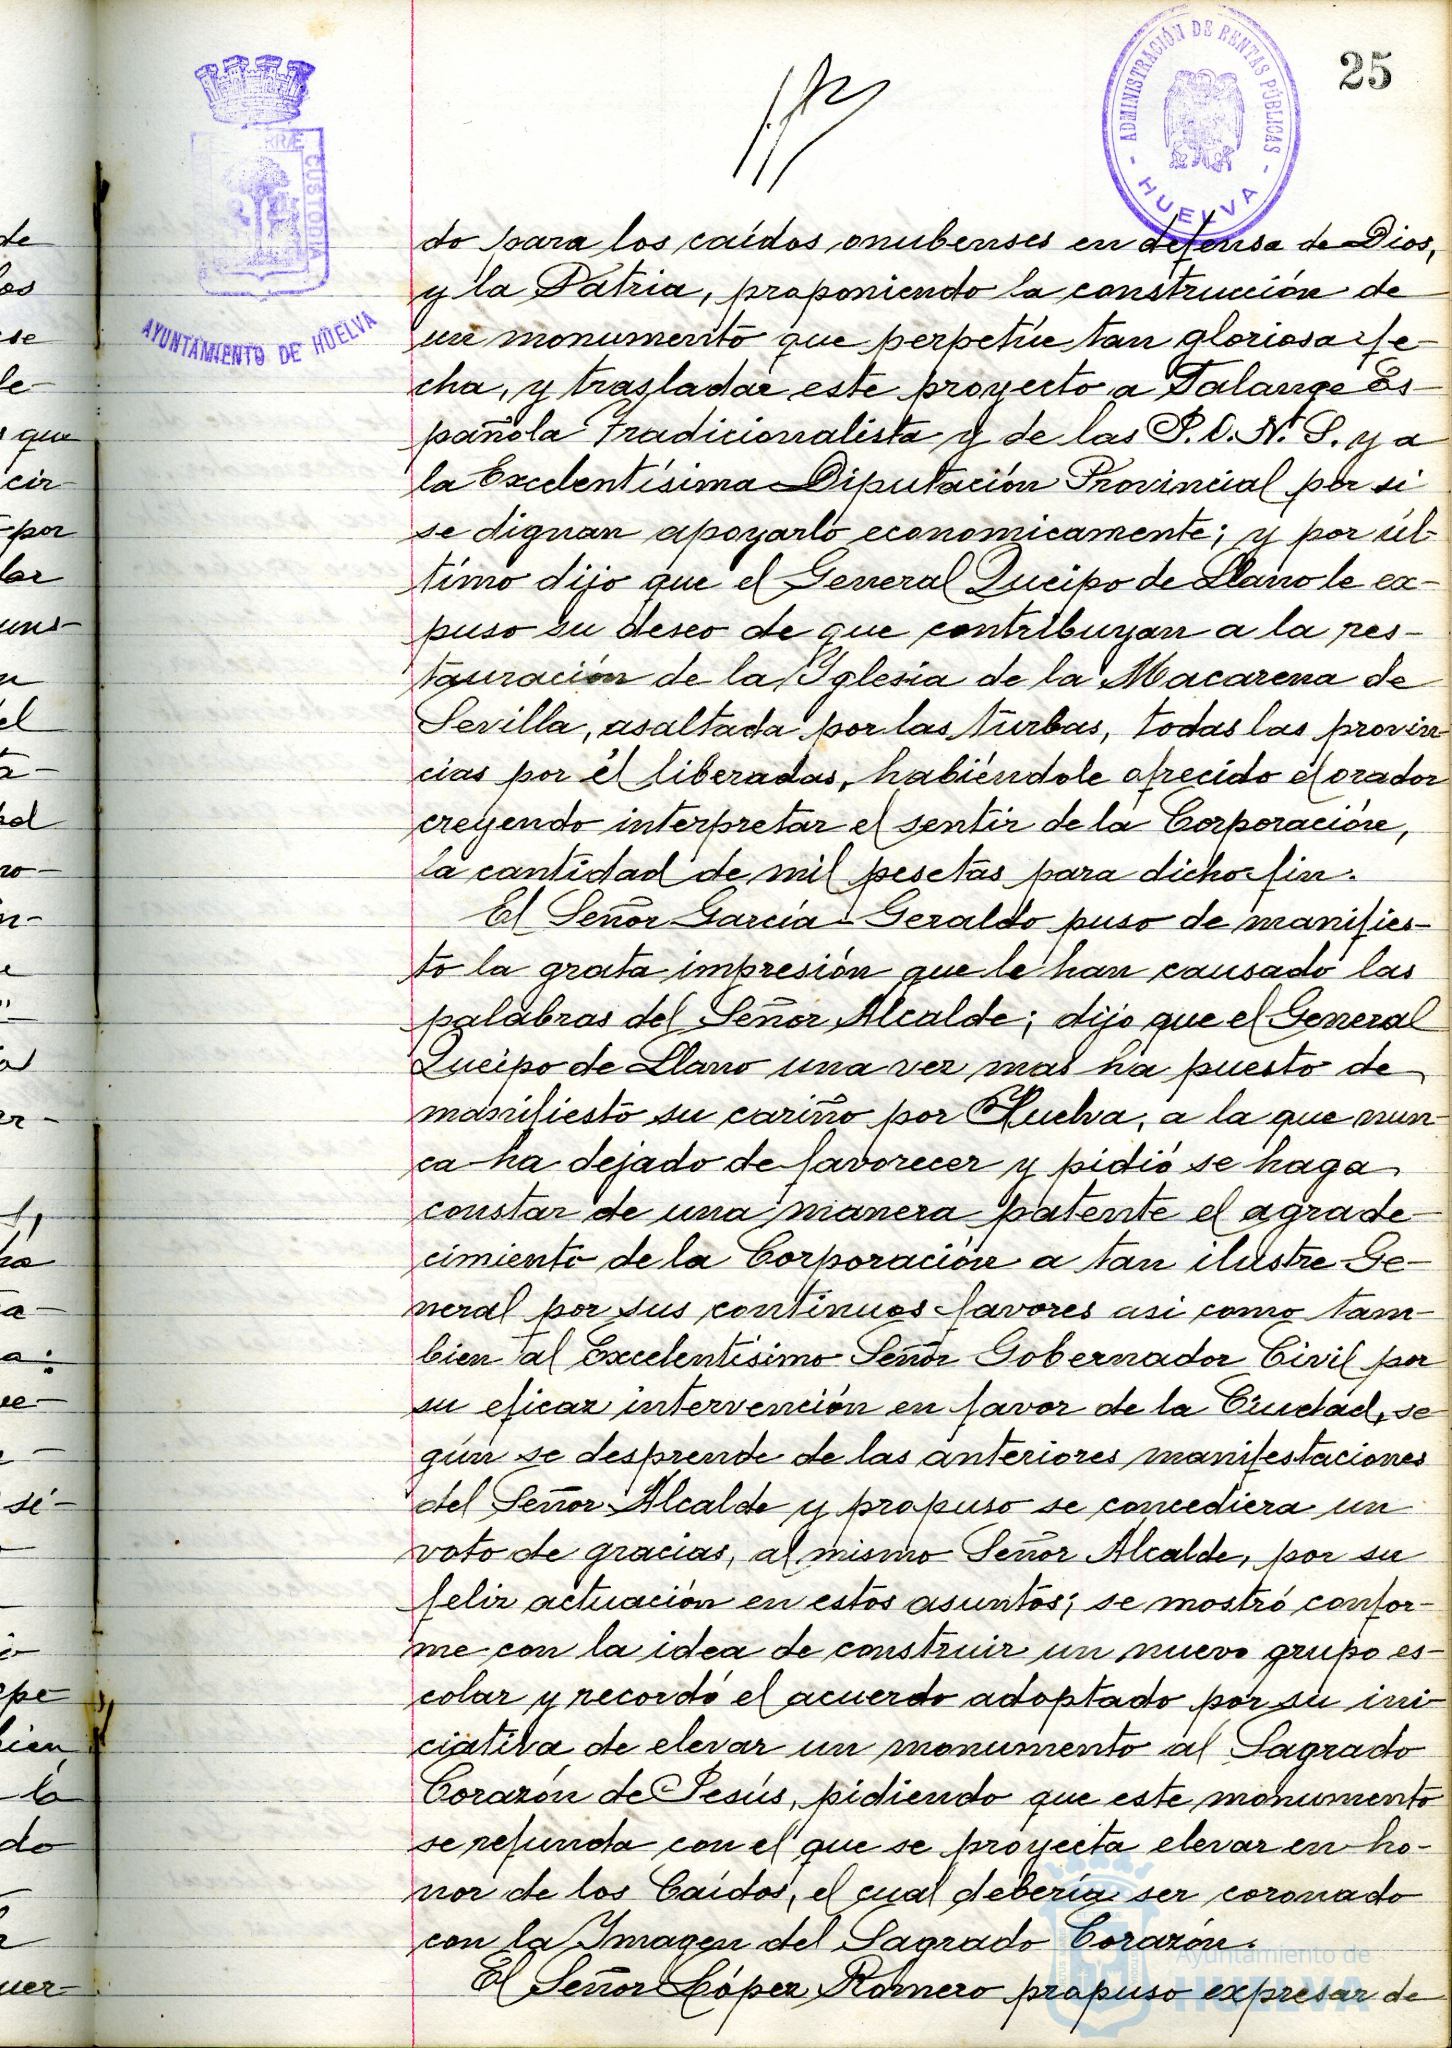 25
ADMINISTRACIÓN DE RENTAS PÚBLICAS
HUELVA
RRÆ CUSTODIA
AYUNTAMIENTO DE HUELVA
do para los caídos onubenses en defensa de Dios,
y la Patria, proponiendo la construcción de
un monumento que perpetúe tan gloriosa fe-
cha, y trasladar este proyecto a Falange Es-
pañola Tradicionalista y de las J.O.N.S. y a
la Excelentísima Diputación Provincial por si
se dignan apoyarlo economicamente; y por úl-
timo dijo que el General Queipo de Llano le ex-
puso su deseo de que contribuyan a la res-
tauración de la Iglesia de la Macarena de
Sevilla, asaltada por las turbas, todas las provin
cias por él liberadas, habiéndole ofrecido el orador
creyendo interpretar el sentir de la Corporación,
la cantidad de mil pesetas para dicho fin.
El Señor García-Geraldo puso de manifies-
to la grata impresión que le han causado las
palabras del Señor Alcalde; dijo que el General
Queipo de Llano una vez mas ha puesto de
manifiesto su cariño por Huelva, a la que nun-
ca ha dejado de favorecer y pidió se haga
constar de una manera patente el agrade-
cimiento de la Corporación a tan ilustre Ge-
neral por sus continuos favores asi como tam-
bien al Excelentísimo Señor Gobernador Civil por
su eficaz intervención en favor de la Ciudad, se-
gún se desprende de las anteriores manifestaciones
del Señor Alcalde y propuso se concediera un
voto de gracias, al mismo Señor Alcalde, por su
feliz actuación en estos asuntos; se mostró confor-
me con la idea de construir un nuevo grupo es-
colar y recordó el acuerdo adoptado por su ini-
ciativa de elevar un monumento al Sagrado
Corazón de Jesús, pidiendo que este monumento
se refunda con el que se proyecta elevar en ho-
nor de los Caídos, el cual debería ser coronado
con la Imagen del Sagrado Corazón.
El Señor López Romero propuso expresar de
Ayuntamiento de
HUELVA